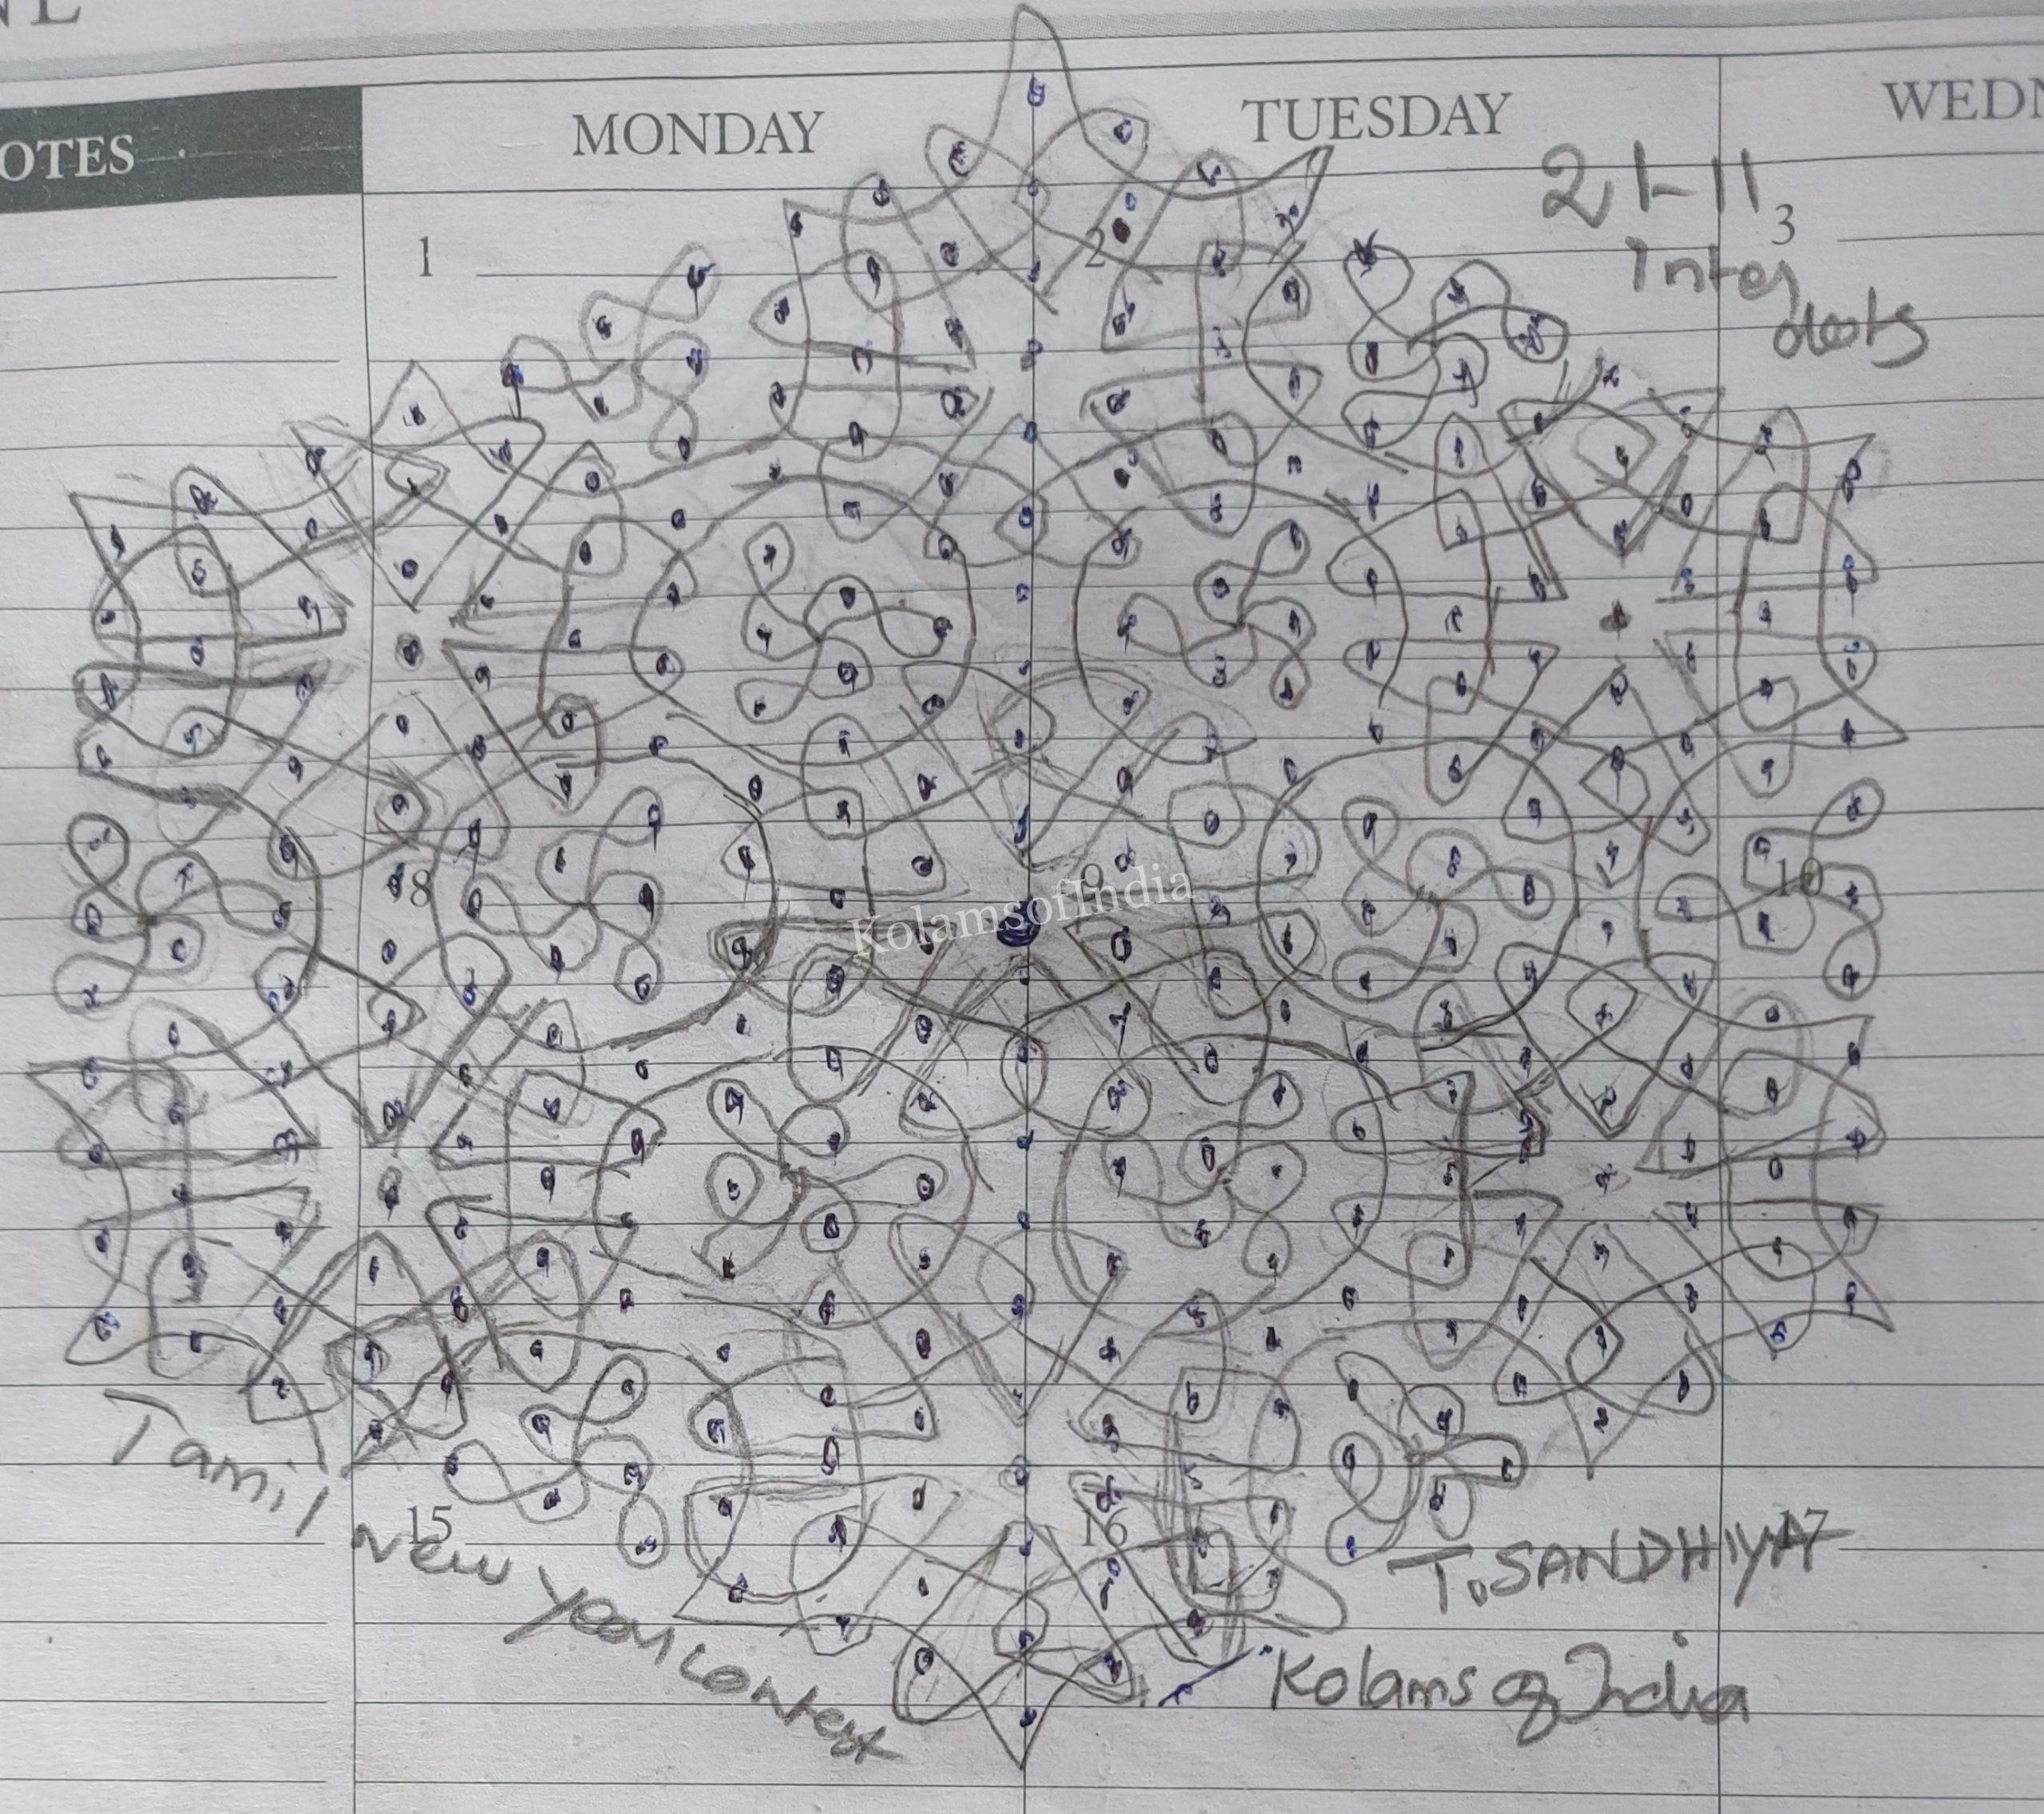 OTES
MONDAY
TUESDAY
WEDN
21-11
Inter
dots
1
2
3
8
9
10
KolamsofIndia
Tamil
New
Year Contest
15
16
17
T.SANDHIYA
Kolams of India